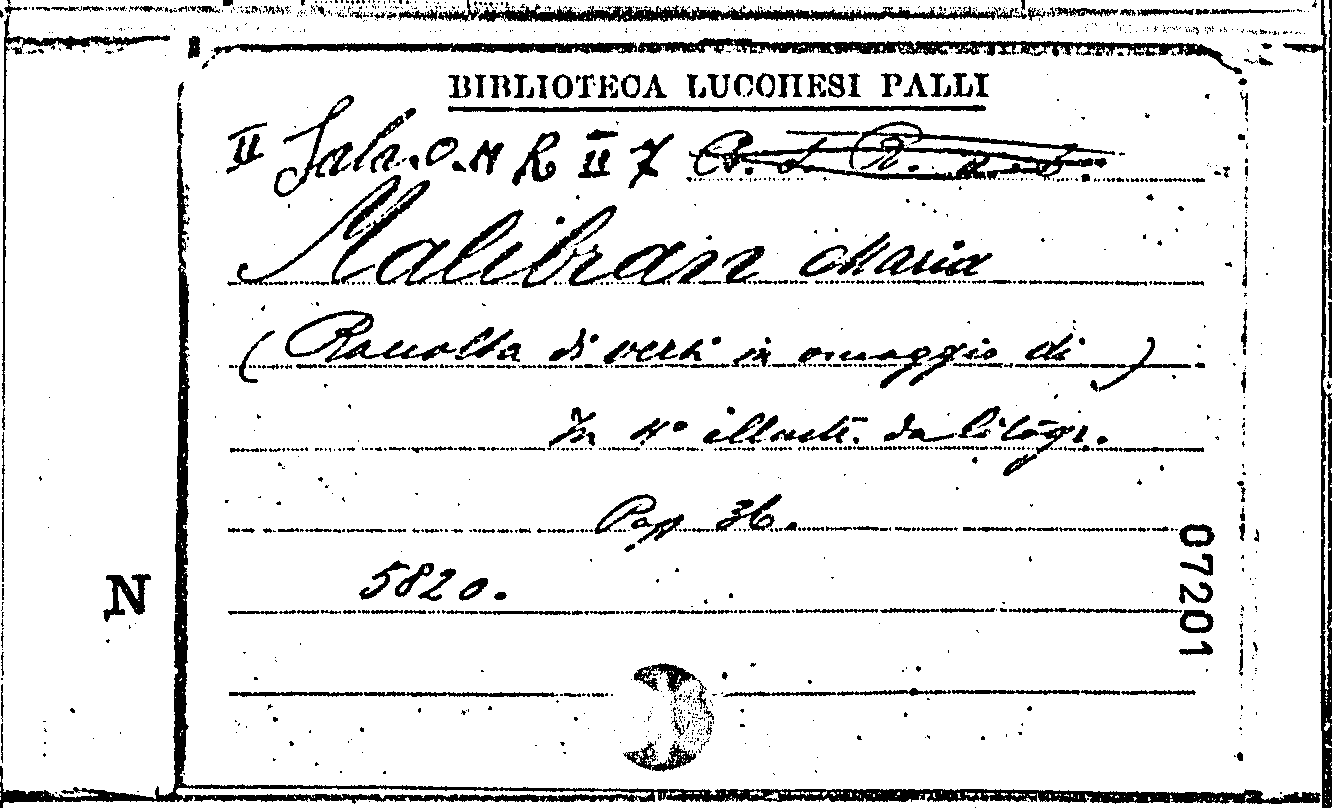 BIBLIOTECA LUCCHESI PALLI
II Sala. O. M R II 7
Malibran Maria
(Raccolta di versi in omaggio di)
In 4º illustr. da litogr.
Pag 36.
5820.
N
07201